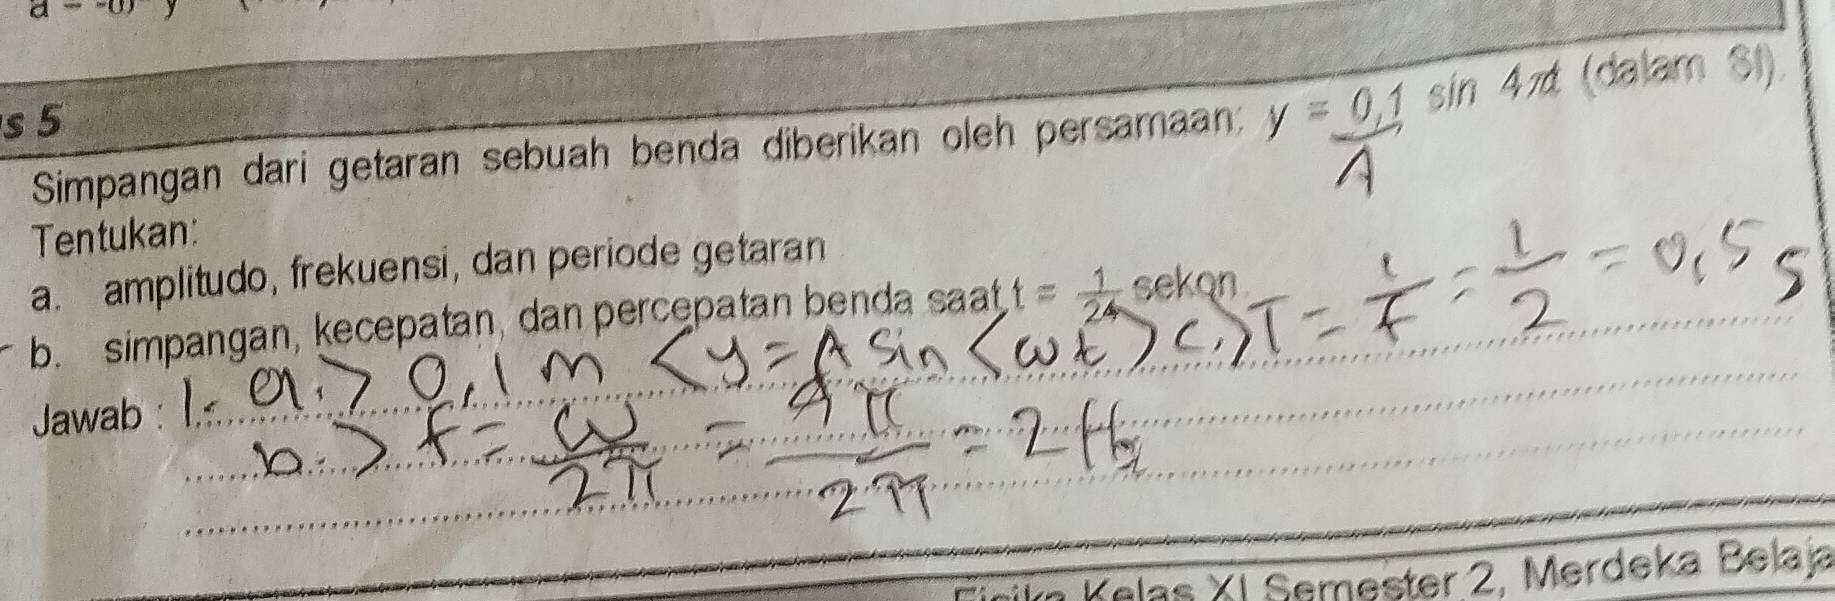 s 5
Simpangan dari getaran sebuah benda diberikan oleh persamaan: y = 0,1 sin 4πt (dalam SI).
A
Tentukan:
a. amplitudo, frekuensi, dan periode getaran
b. simpangan, kecepatan, dan percepatan benda saat t = 1/24 sekon
Jawab : 1. a.> 0,1 m <y = A sin (ωt) c.> T = 1/f = 1/2 = 0,5 s
b.> f = ω/2π = 4π/2π = 2 Hz
Fisika Kelas XI Semester 2, Merdeka Belaja